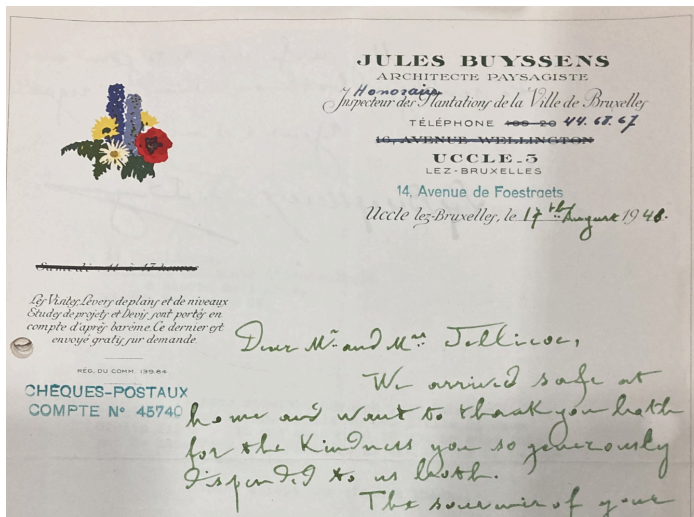 JULES BUYSSENS
ARCHITECTE PAYSAGISTE
Honoraire
Inspecteur des Plantations de la Ville de Bruxelles
TÉLÉPHONE 44.68.67
16, AVENUE WELLINGTON
UCCLE-3
LEZ-BRUXELLES
14, Avenue de Foestraets
Uccle lez-Bruxelles, le 17th August 1948.
Samedi: 11 à 17 heures
Les Visites, Levers de plans et de niveaux
Etudes de projets et Devis sont portés en
compte d'après barème. Ce dernier est
envoyé gratis sur demande.
RÉG. DU COMM. 139.84
CHÈQUES-POSTAUX
COMPTE N° 45740
Dear Mr. and Mrs. Jellicoe,
We arrived safe at
home and want to thank you both
for the kindness you so generously
dispended to us both.
The souvenir of your